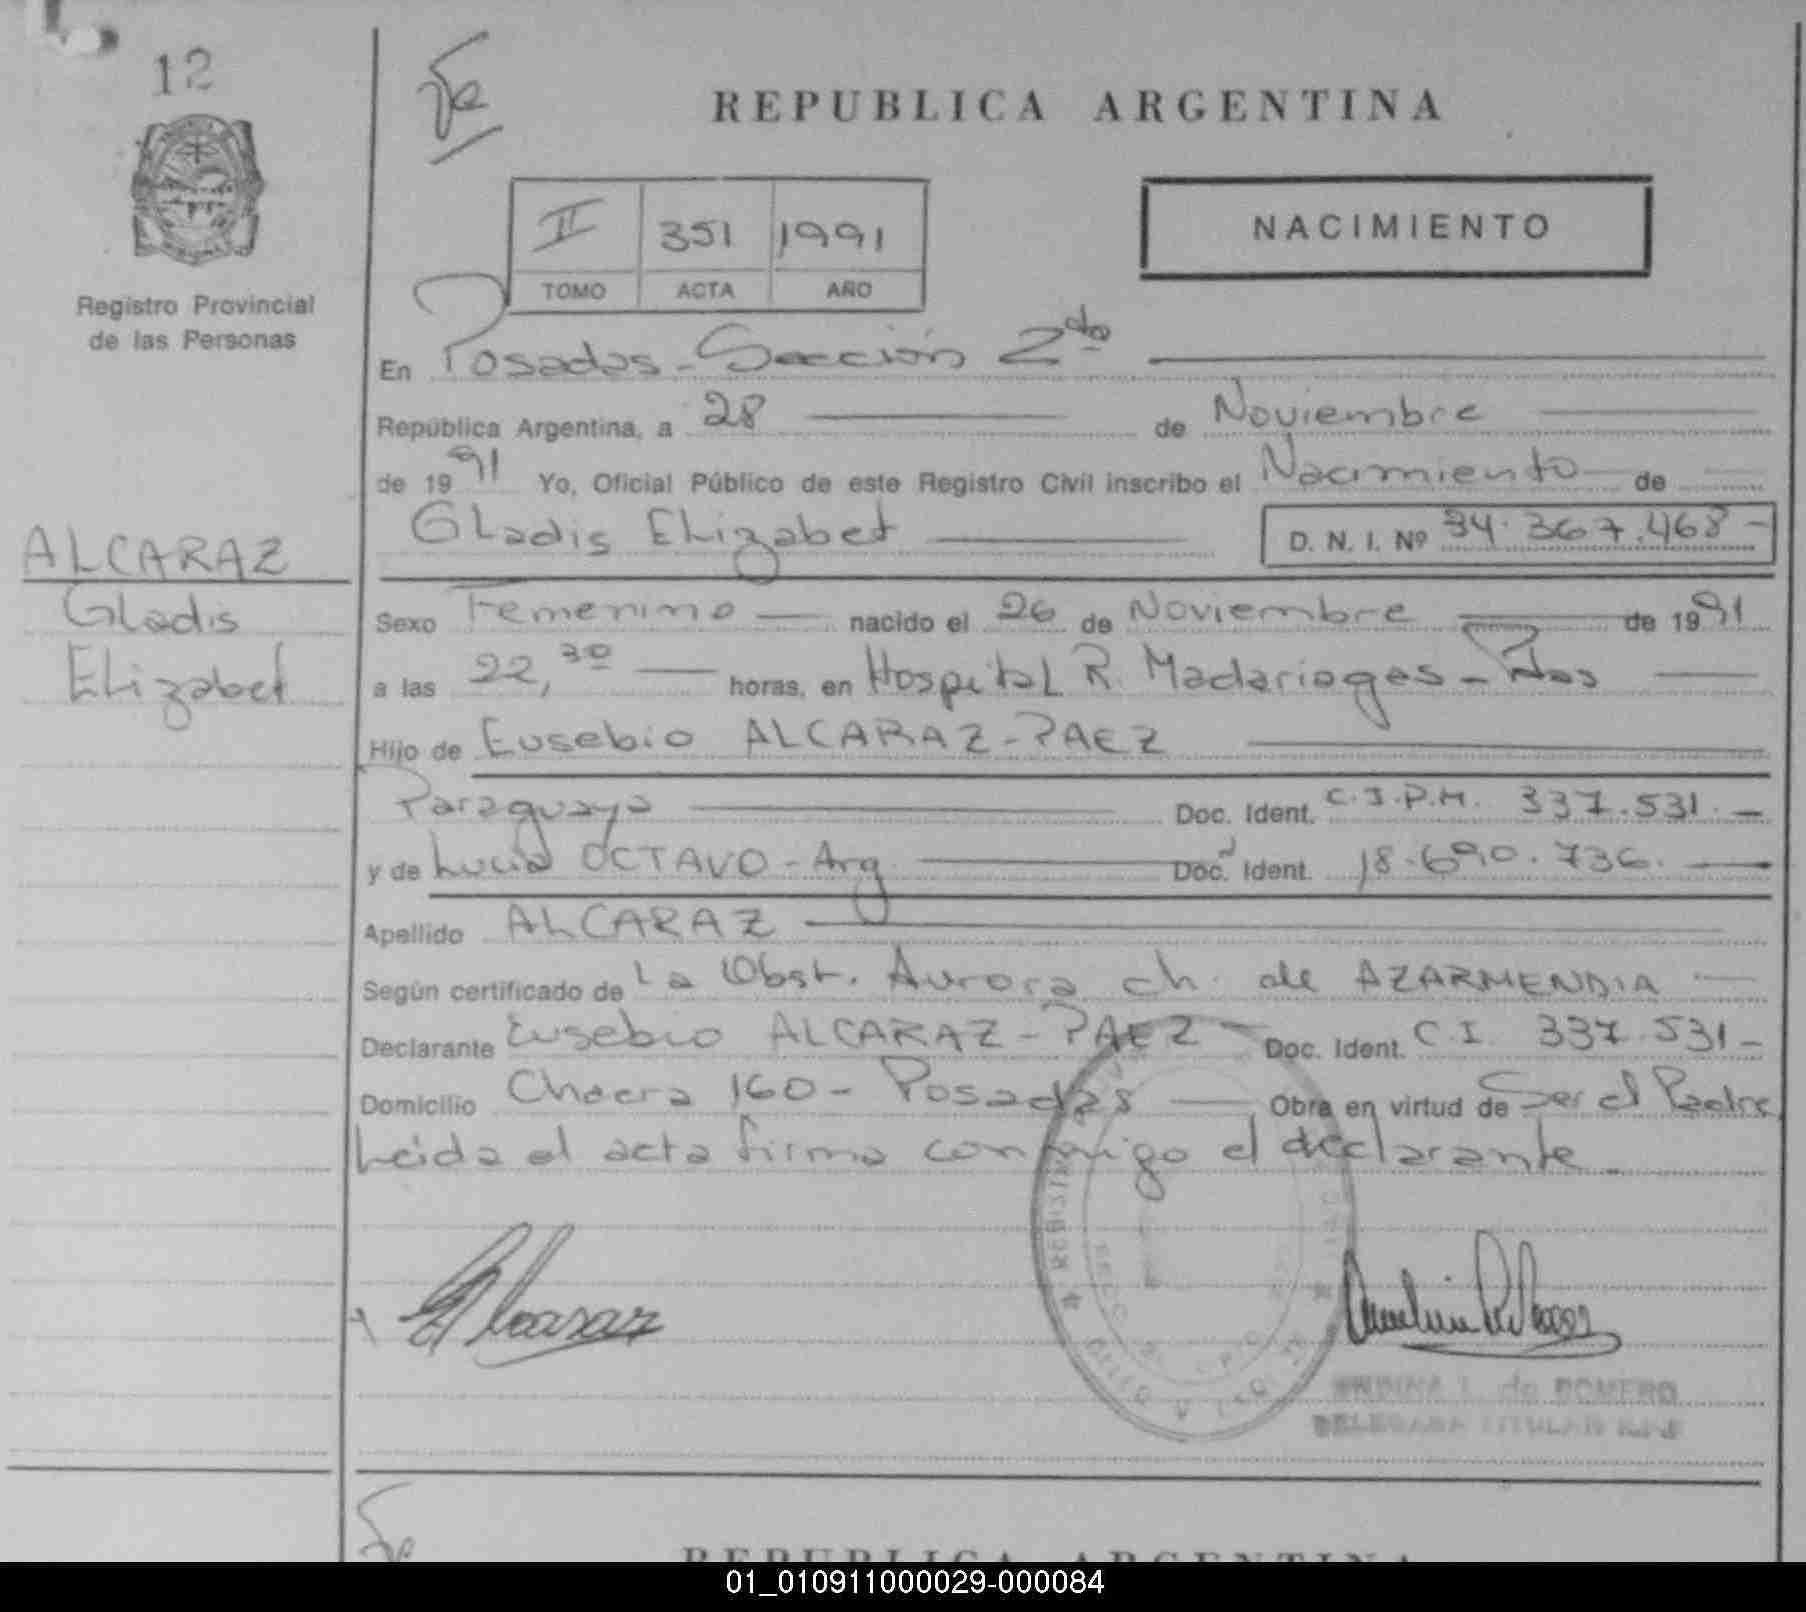 12
REPUBLICA ARGENTINA
II 351 1991
TOMO ACTA AÑO
NACIMIENTO
Registro Provincial
de las Personas
En Posadas - Sección 2da
República Argentina, a 28 de Noviembre
de 1991 Yo, Oficial Público de este Registro Civil inscribo el Nacimiento de
Gladis Elizabet D. N. I. Nº 34.367.468-
ALCARAZ
Gladis
Elizabet
Sexo Femenino nacido el 26 de Noviembre de 1991
a las 22,30 horas, en Hospital R. Madariagas - Pdas
Hijo de Eusebio ALCARAZ-PAEZ
Paraguaya Doc. Ident. C.I.P.M. 337.531.-
y de Lucia OCTAVO - Arg Doc. Ident. 18.690.736.
Apellido ALCARAZ
Según certificado de La Obst. Aurora ch. de AZARMENDIA
Declarante Eusebio ALCARAZ-PAEZ Doc. Ident. C.I. 337.531-
Domicilio Chacra 160 - Posadas Obra en virtud de Ser el Padre
Leida el acta firma conmigo el declarante.
Alcaraz
L. de ROMERO
DELEGADA TITULAR
REPUBLICA ARGENTINA
01_010911000029-000084